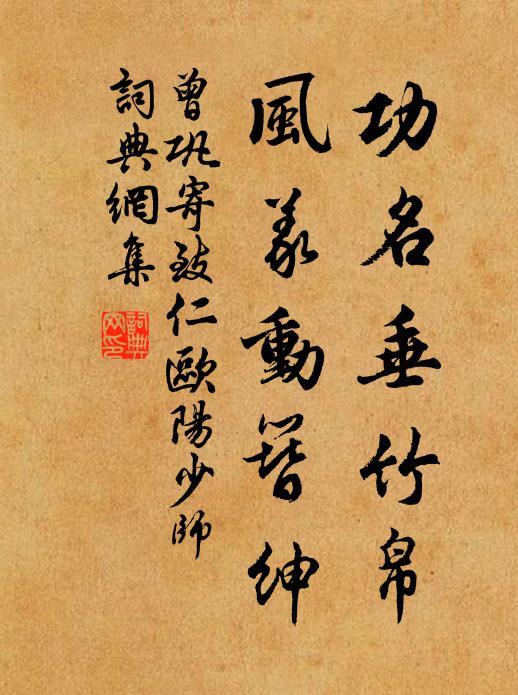 功名垂竹帛
風義動簪紳
曾巩寄致仁歐陽少師
詞典網集
詞典
网印